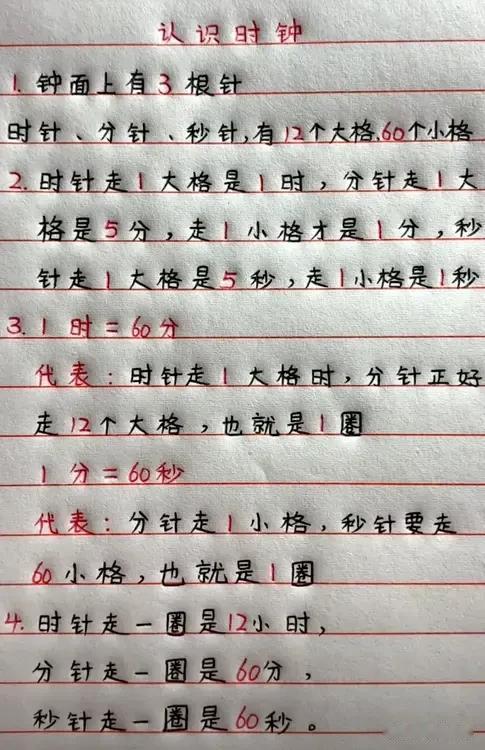 认识时钟
1. 钟面上有3根针
时针、分针、秒针,有12个大格,60个小格
2. 时针走1大格是1时,分针走1大
格是5分,走1小格才是1分,秒
针走1大格是5秒,走1小格是1秒
3. 1时=60分
代表:时针走1大格时,分针正好
走12个大格,也就是1圈
1分=60秒
代表:分针走1小格,秒针要走
60小格,也就是1圈
4. 时针走一圈是12小时,
分针走一圈是60分,
秒针走一圈是60秒。